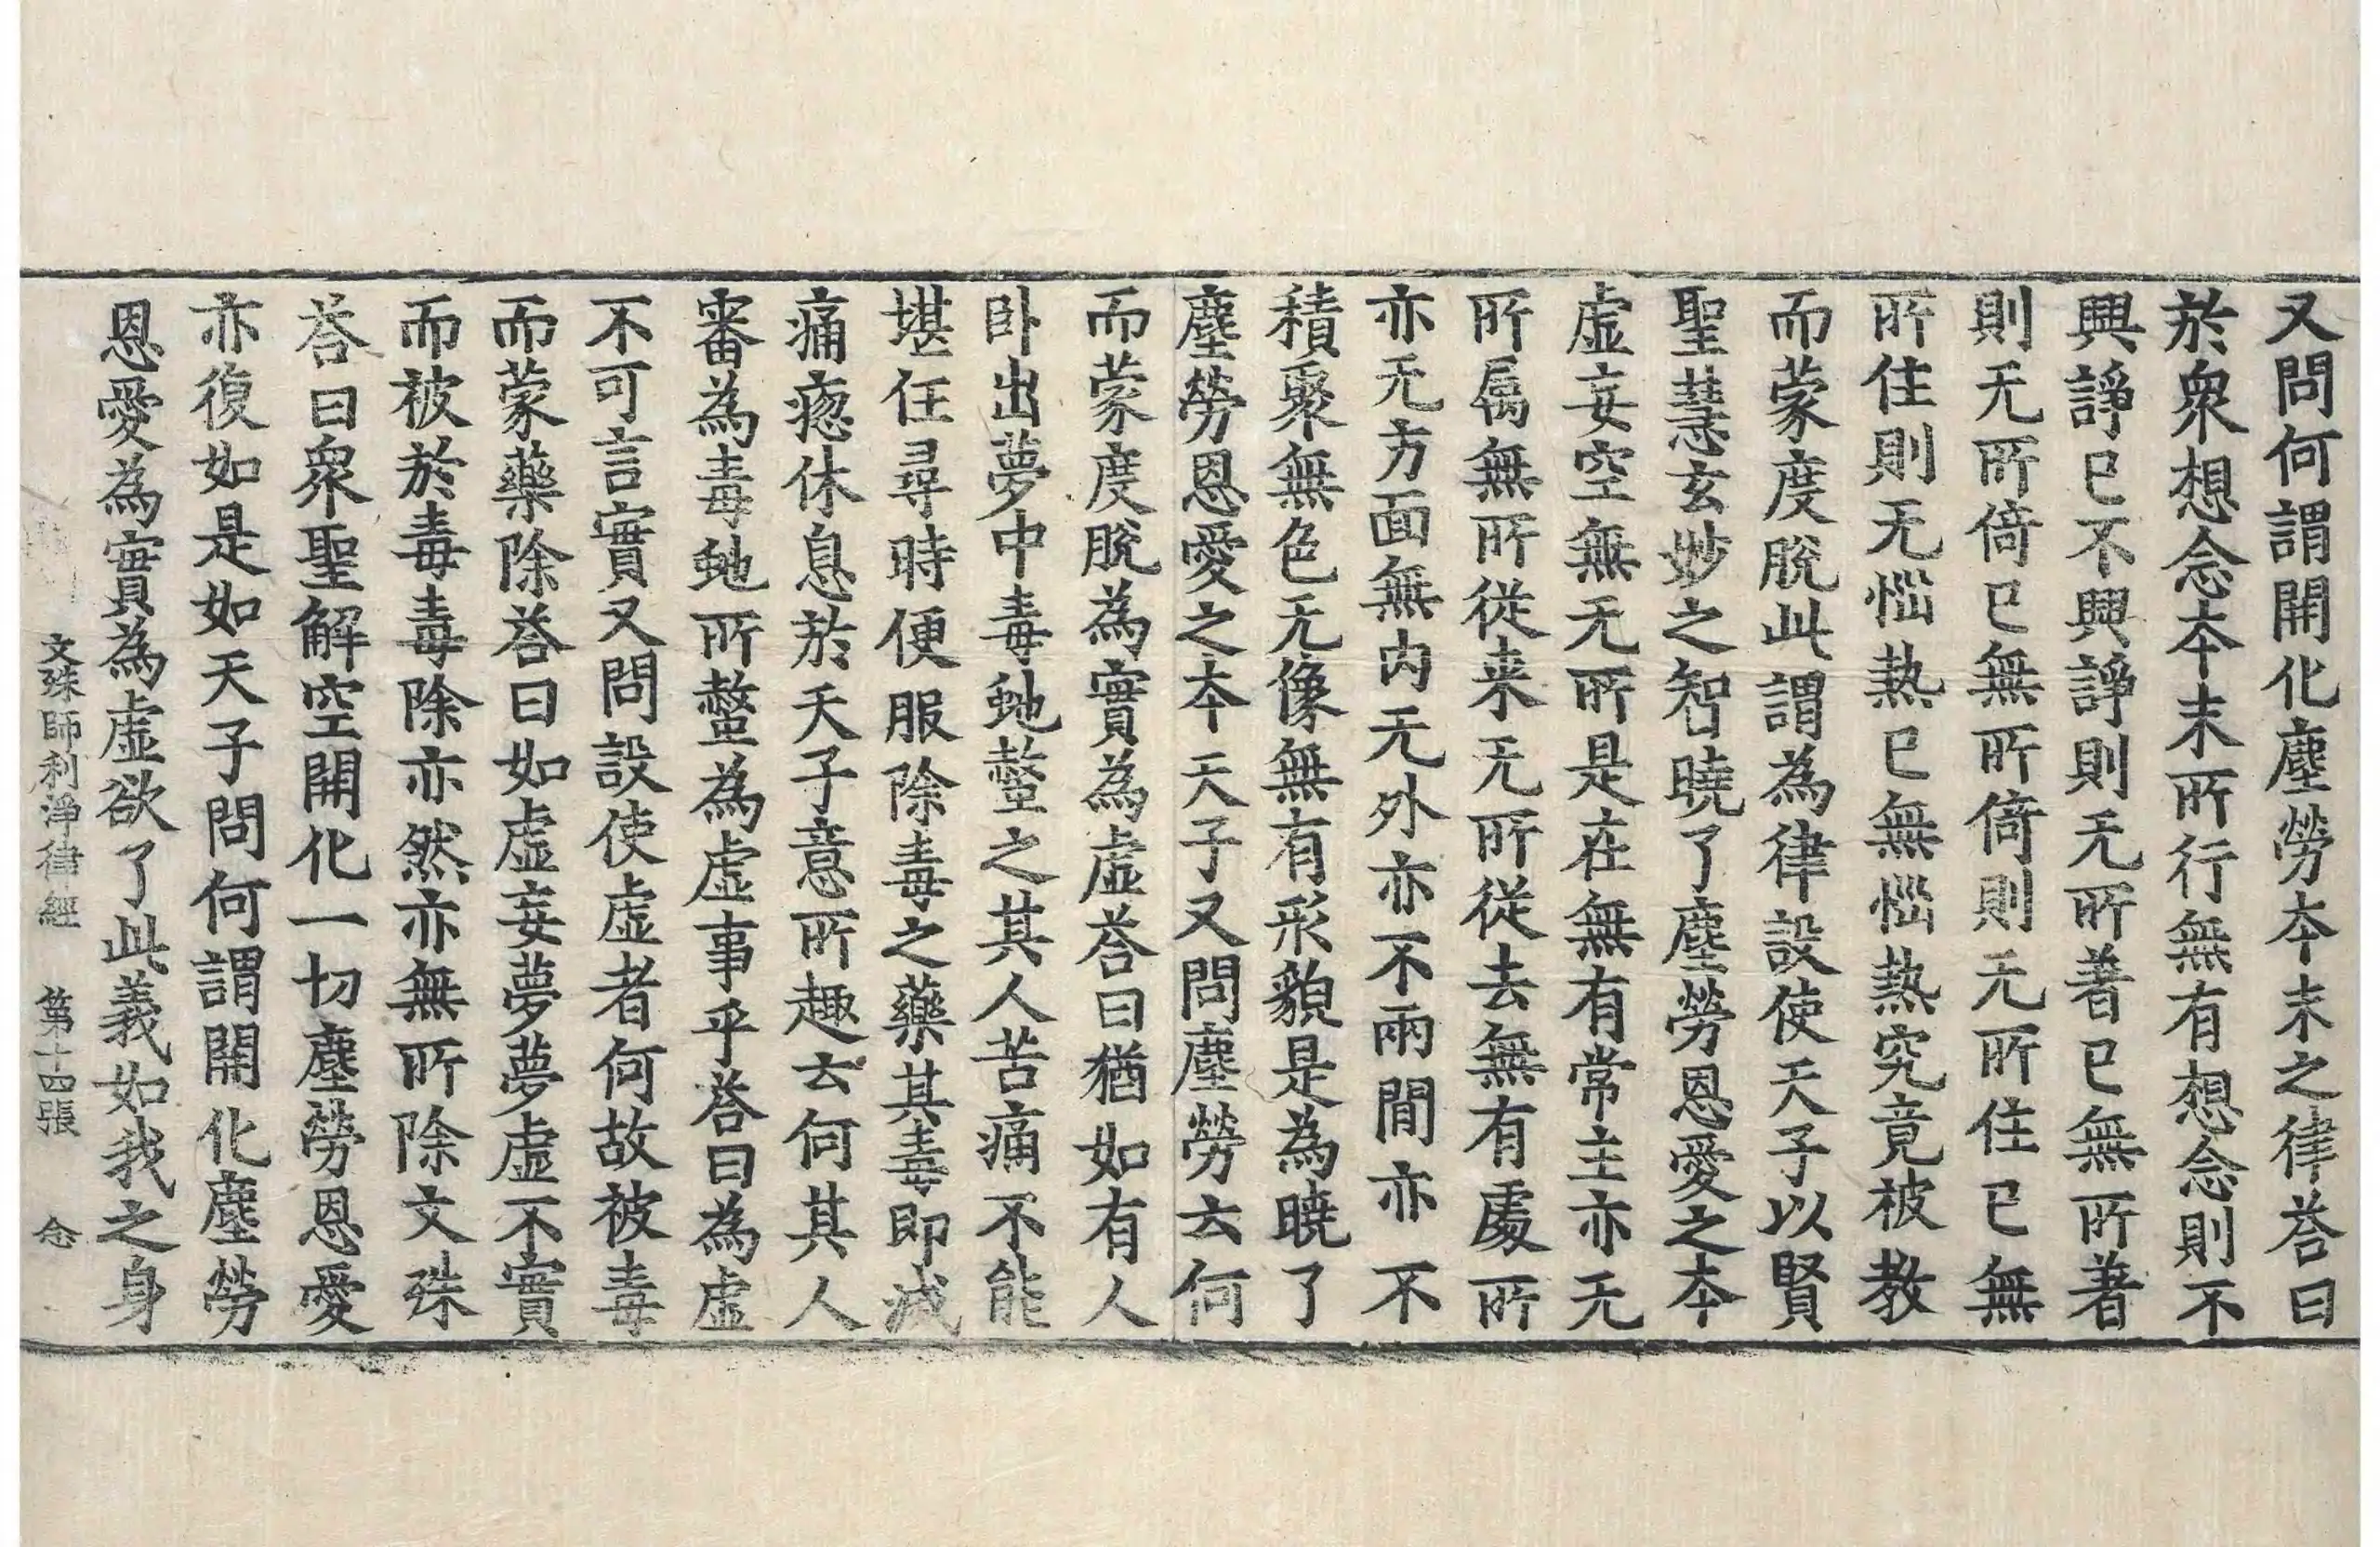 又問何謂開化塵勞本末之律荅曰
於衆想念本末所行無有想念則不
興諍已不興諍則无所著已無所著
則无所倚已無所倚則无所住已無
所住則无惱熱已無惱熱究竟被教
而蒙度脫此謂為律設使天子以賢
聖慧玄妙之智曉了塵勞恩愛之本
虛妄空無无所是在無有常主亦无
所屬無所從来无所從去無有處所
亦无方面無内无外亦不兩閒亦不
積聚無色无像無有形貌是為曉了
塵勞恩愛之本天子又問塵勞云何
而蒙度脫為實為虛荅曰猶如有人
卧出夢中毒虵螫之其人苦痛不能
堪任尋時便服除毒之藥其毒即滅
痛㥃休息於天子意所趣云何其人
審為毒虵所螫為虛事乎荅曰為虛
不可言實又問設使虛者何故被毒
而蒙藥除荅曰如虛妄夢夢虛不實
而被於毒毒除亦然亦無所除文殊
荅曰衆聖解空開化一切塵勞恩愛
亦復如是如天子問何謂開化塵勞
恩愛為實為虛欲了此義如我之身
文殊師利淨律經 第十四張 念